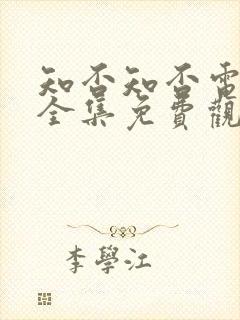 知否知否電
全集免費觀
李學江